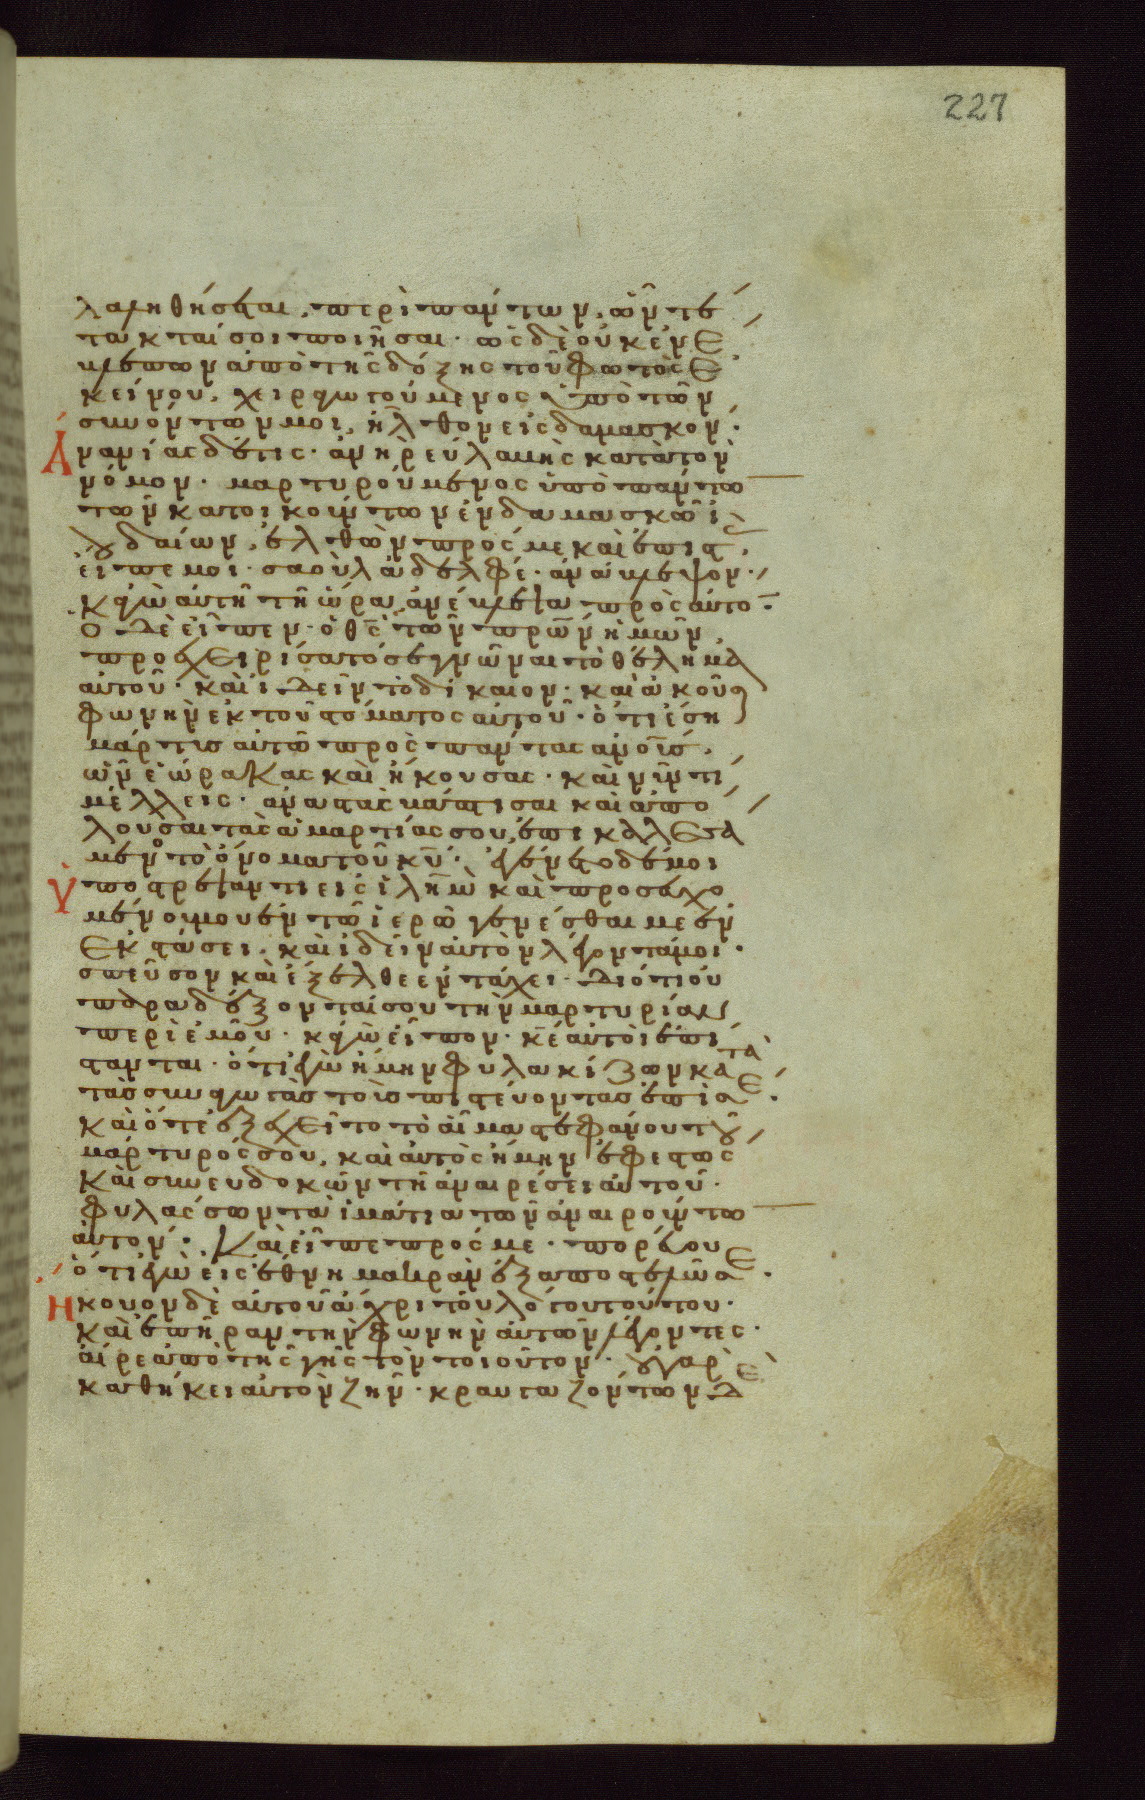 227
λαληθήσεται, περὶ πάντων, ὧν τέ
τακταί σοι ποιῆσαι· ὡς δὲ οὐκ ἐνέ
βλεπον ἀπὸ τῆς δόξης τοῦ φωτὸς ἐ
κείνου, χειραγωγούμενος ὑπὸ τῶν
συνόντων μοι, ἦλθον εἰς δαμασκόν·
Ἀνανίας δέ τις· ἀνὴρ εὐλαβὴς κατὰ τὸν
νόμον· μαρτυρούμενος ὑπὸ πάντω
τῶν κατοικούντων ἐν δαμασκῶ ἰ
ουδαίων, ἐλθὼν πρός με καὶ ἐπιστὰς
εἶπέ μοι· σαοὺλ ἀδελφέ· ἀνάβλεψον·
κἀγὼ αὐτῆ τῆ ὥρα, ἀνέβλεψα πρὸς αὐτό̄·
ὁ δὲ εἶπεν· ὁ θ̄ς τῶν πρ̄ων ἡμῶν,
προεχειρίσατό σε γνῶναι τὸ θέλημα
αὐτοῦ· καὶ ἰδεῖν τὸ δίκαιον· καὶ ἀκοῦσαι
φωνὴν ἐκ τοῦ στόματος αὐτοῦ· ὅτι ἔση
μάρτυς αὐτῶ πρὸς πάντας ἀν̄ους,
ὧν ἑώρακας καὶ ἤκουσας· καὶ νῦν τί
μέλλεις· ἀναστὰς βάπτισαι καὶ ἀπό
λουσαι τὰς ἁμαρτίας σου, ἐπικαλεσά
μενος τὸ ὄνομα τοῦ κ̄υ· ἐγένετο δέ μοι
Ὑποστρέψαντι εἰς ἰλ̄ημ καὶ προσευχο
μένου μου ἐν τῶ ἱερῶ γενέσθαι με ἐν
ἐκστάσει, καὶ ἰδεῖν αὐτὸν λέγοντά μοι·
σπεῦσον καὶ ἔξελθε ἐν τάχει· διότι οὐ
παραδέξονταί σου τὴν μαρτυρίαν
περὶ ἐμοῦ· κἀγὼ εἶπον· κ̄ε αὐτοὶ ἐπί
στανται· ὅτι ἐγὼ ἤμην φυλακίζων κατὰ
τὰς συναγωγὰς τοὺς πιστεύοντας ἐπὶ σέ·
καὶ ὅτε ἐξεχεῖτο τὸ αἷμα στεφάνου τοῦ
μάρτυρός σου, καὶ αὐτὸς ἤμην ἐφεστὼς
καὶ συνευδοκῶν τῆ ἀναιρέσει αὐτοῦ·
φυλάσσων τὰ ἱμάτια τῶν ἀναιρούντω
αὐτόν· Καὶ εἶπε πρός με· πορεύου
ὅτι ἐγὼ εἰς ἔθνη μακρὰν ἐξαποστελῶ σε·
Ἤκουον δὲ αὐτοῦ ἄχρι τοῦ λόγου τούτου·
καὶ ἐπῆραν τὴν φωνὴν αὐτῶν λέγοντες·
αἶρε ἀπὸ τῆς γῆς τὸν τοιοῦτον· οὐ γὰρ
καθῆκει αὐτὸν ζῆν· κραυγαζόντων δὲ